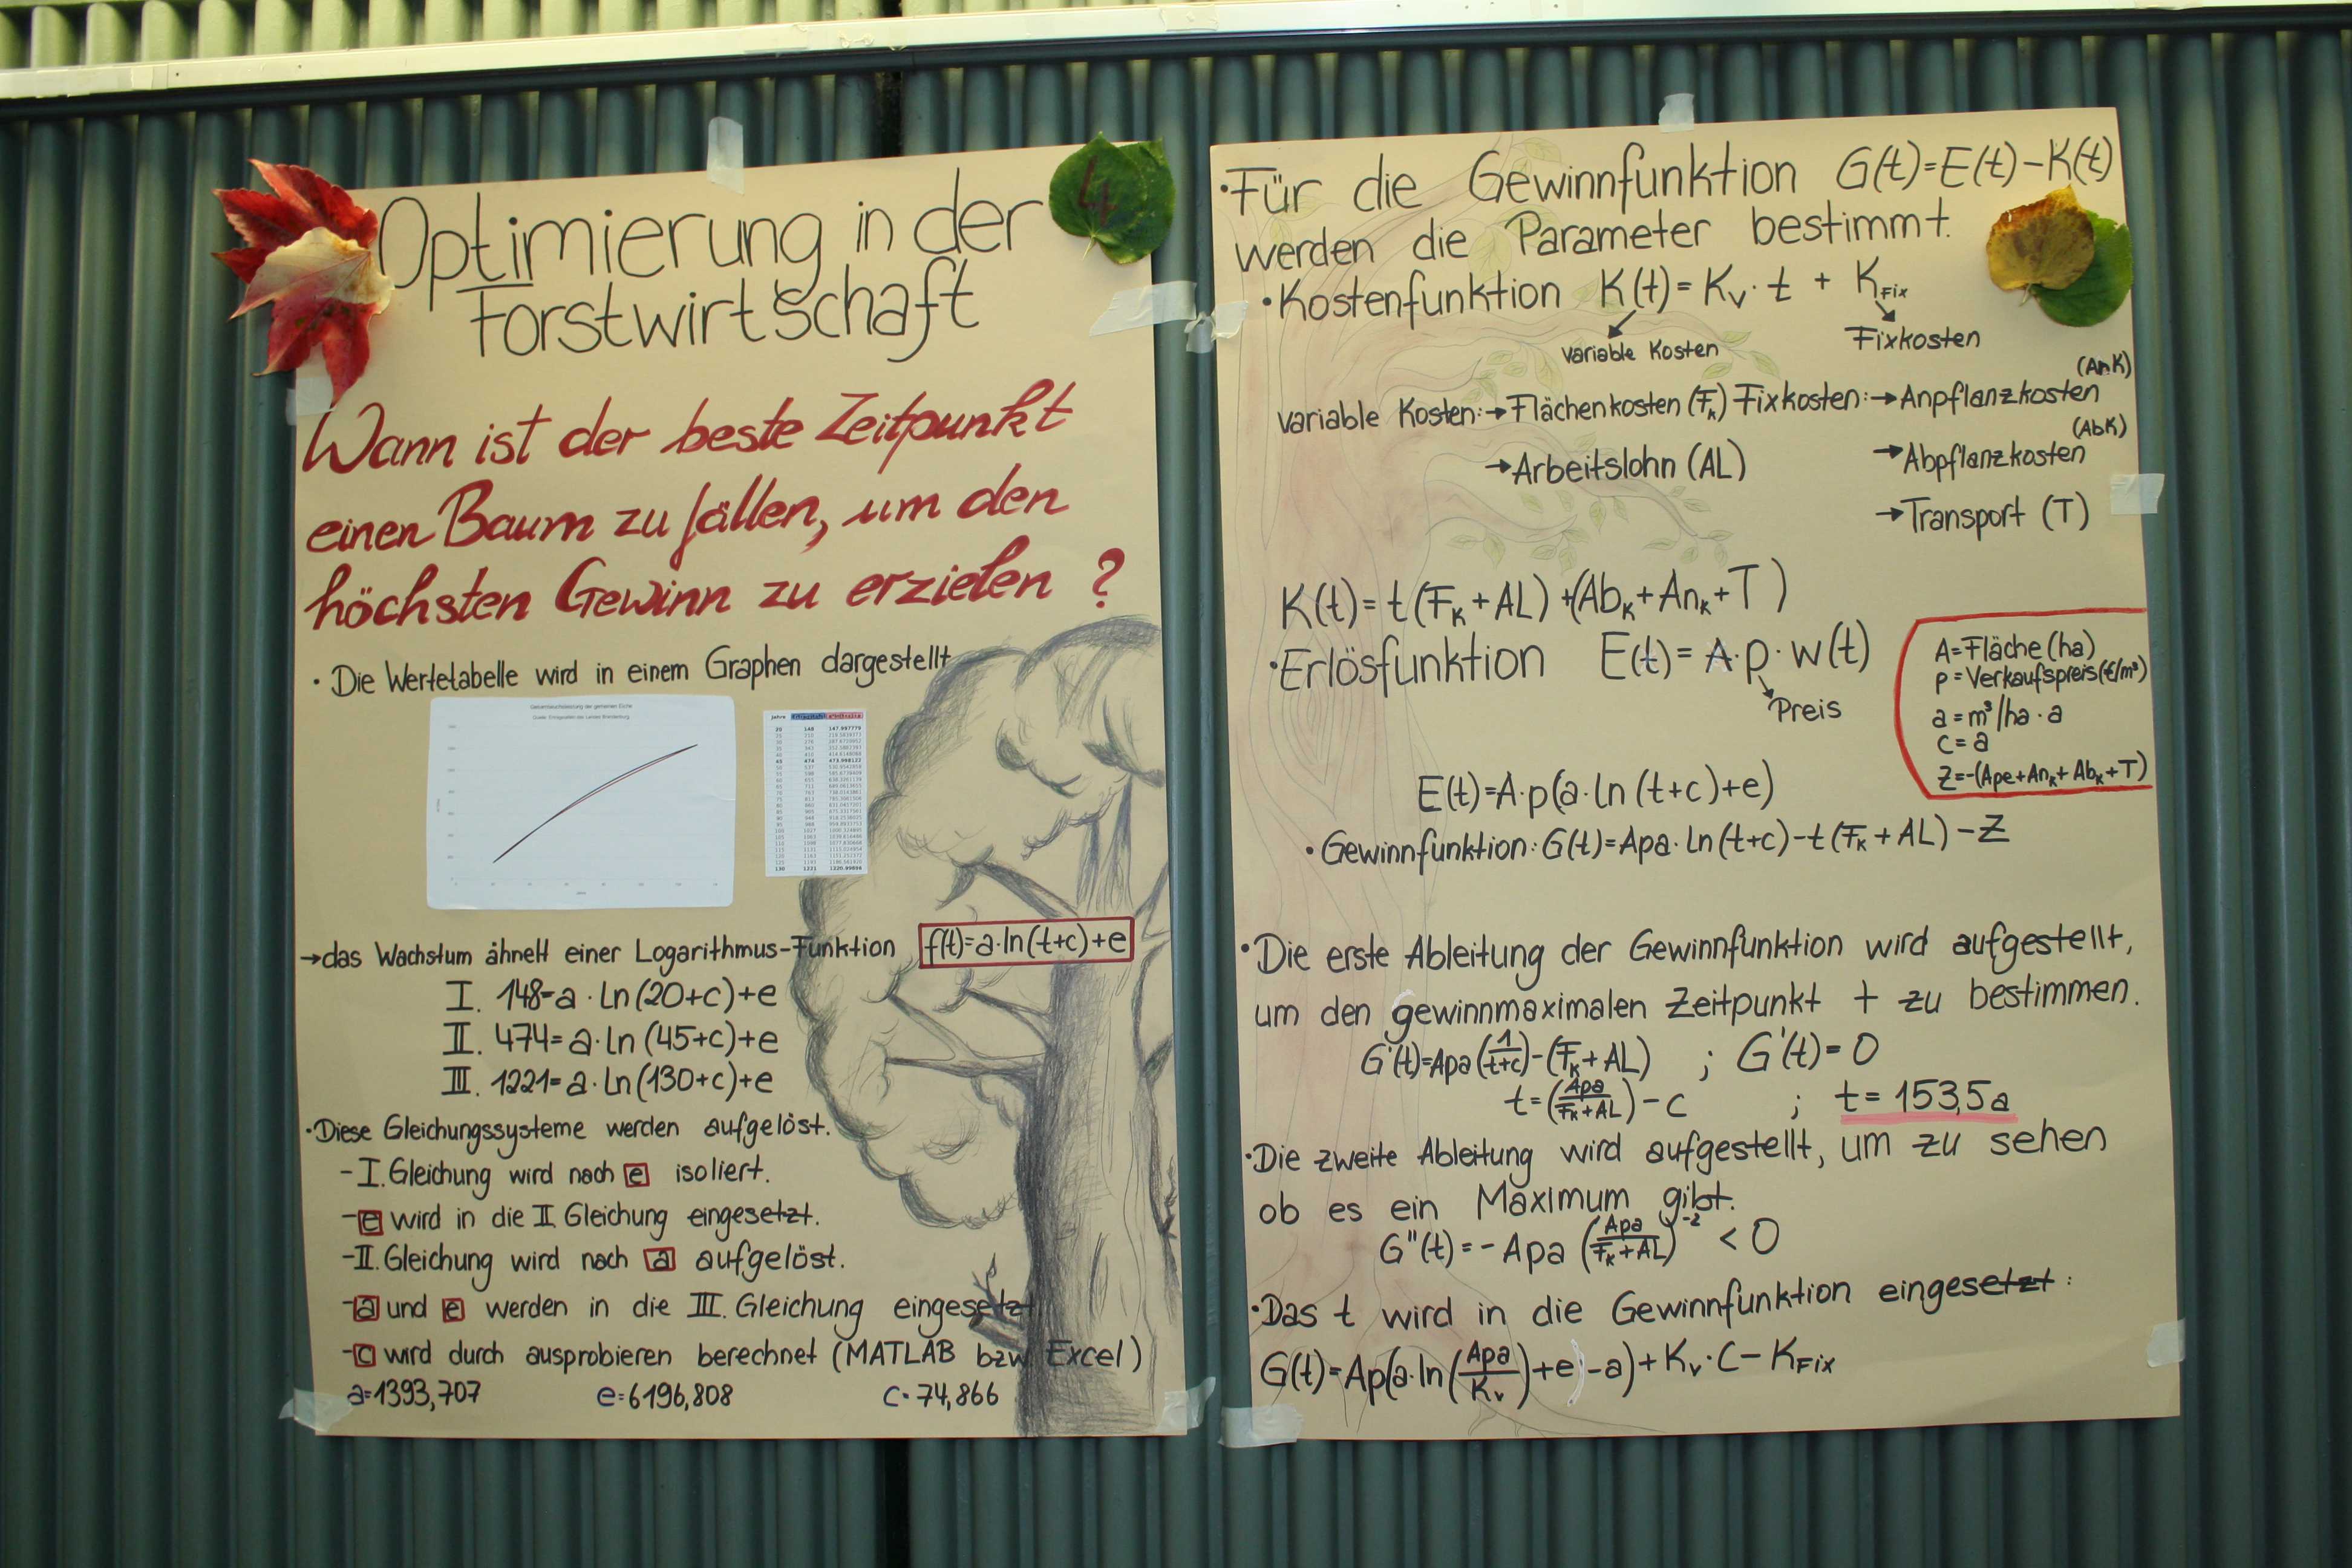 Optimierung in der
Forstwirtschaft
4
Wann ist der beste Zeitpunkt
einen Baum zu fällen, um den
höchsten Gewinn zu erzielen ?
· Die Wertetabelle wird in einem Graphen dargestellt
→das Wachstum ähnelt einer Logarithmus-Funktion f(t)=a·ln(t+c)+e
I. 148=a·ln(20+c)+e
II. 474=a·ln(45+c)+e
III. 1221=a·ln(130+c)+e
·Diese Gleichungssysteme werden aufgelöst.
-I.Gleichung wird nach e isoliert.
-e wird in die II. Gleichung eingesetzt.
-II.Gleichung wird nach a aufgelöst.
-a und e werden in die III. Gleichung eingesetzt
-c wird durch ausprobieren berechnet (MATLAB bzw Excel)
a=1393,707 e=6196,808 c=74,866
·Für die Gewinnfunktion G(t)=E(t)-K(t)
werden die Parameter bestimmt.
·Kostenfunktion K(t)=Kv·t + KFix
variable Kosten Fixkosten
variable Kosten:→Flächenkosten (FK) Fixkosten:→Anpflanzkosten (AnK)
→Arbeitslohn (AL) →Abpflanzkosten (AbK)
→Transport (T)
K(t)=t(FK+AL)+(AbK+AnK+T)
·Erlösfunktion E(t)=A·p·w(t)
Preis
A=Fläche(ha)
p=Verkaufspreis(€/m³)
a=m³/ha·a
c=a
Z=-(Ape+AnK+AbK+T)
E(t)=A·p(a·ln(t+c)+e)
·Gewinnfunktion: G(t)=Apa·ln(t+c)-t(FK+AL)-Z
·Die erste Ableitung der Gewinnfunktion wird aufgestellt,
um den gewinnmaximalen Zeitpunkt t zu bestimmen.
G'(t)=Apa(1/(t+c))-(FK+AL) ; G'(t)=0
t=(Apa/(FK+AL))-c ; t=153,5a
·Die zweite Ableitung wird aufgestellt, um zu sehen
ob es ein Maximum gibt.
G''(t)=-Apa(Apa/(FK+AL))^-2 <0
·Das t wird in die Gewinnfunktion eingesetzt:
G(t)=Ap(a·ln(Apa/Kv)+e-a)+Kv·C-KFix